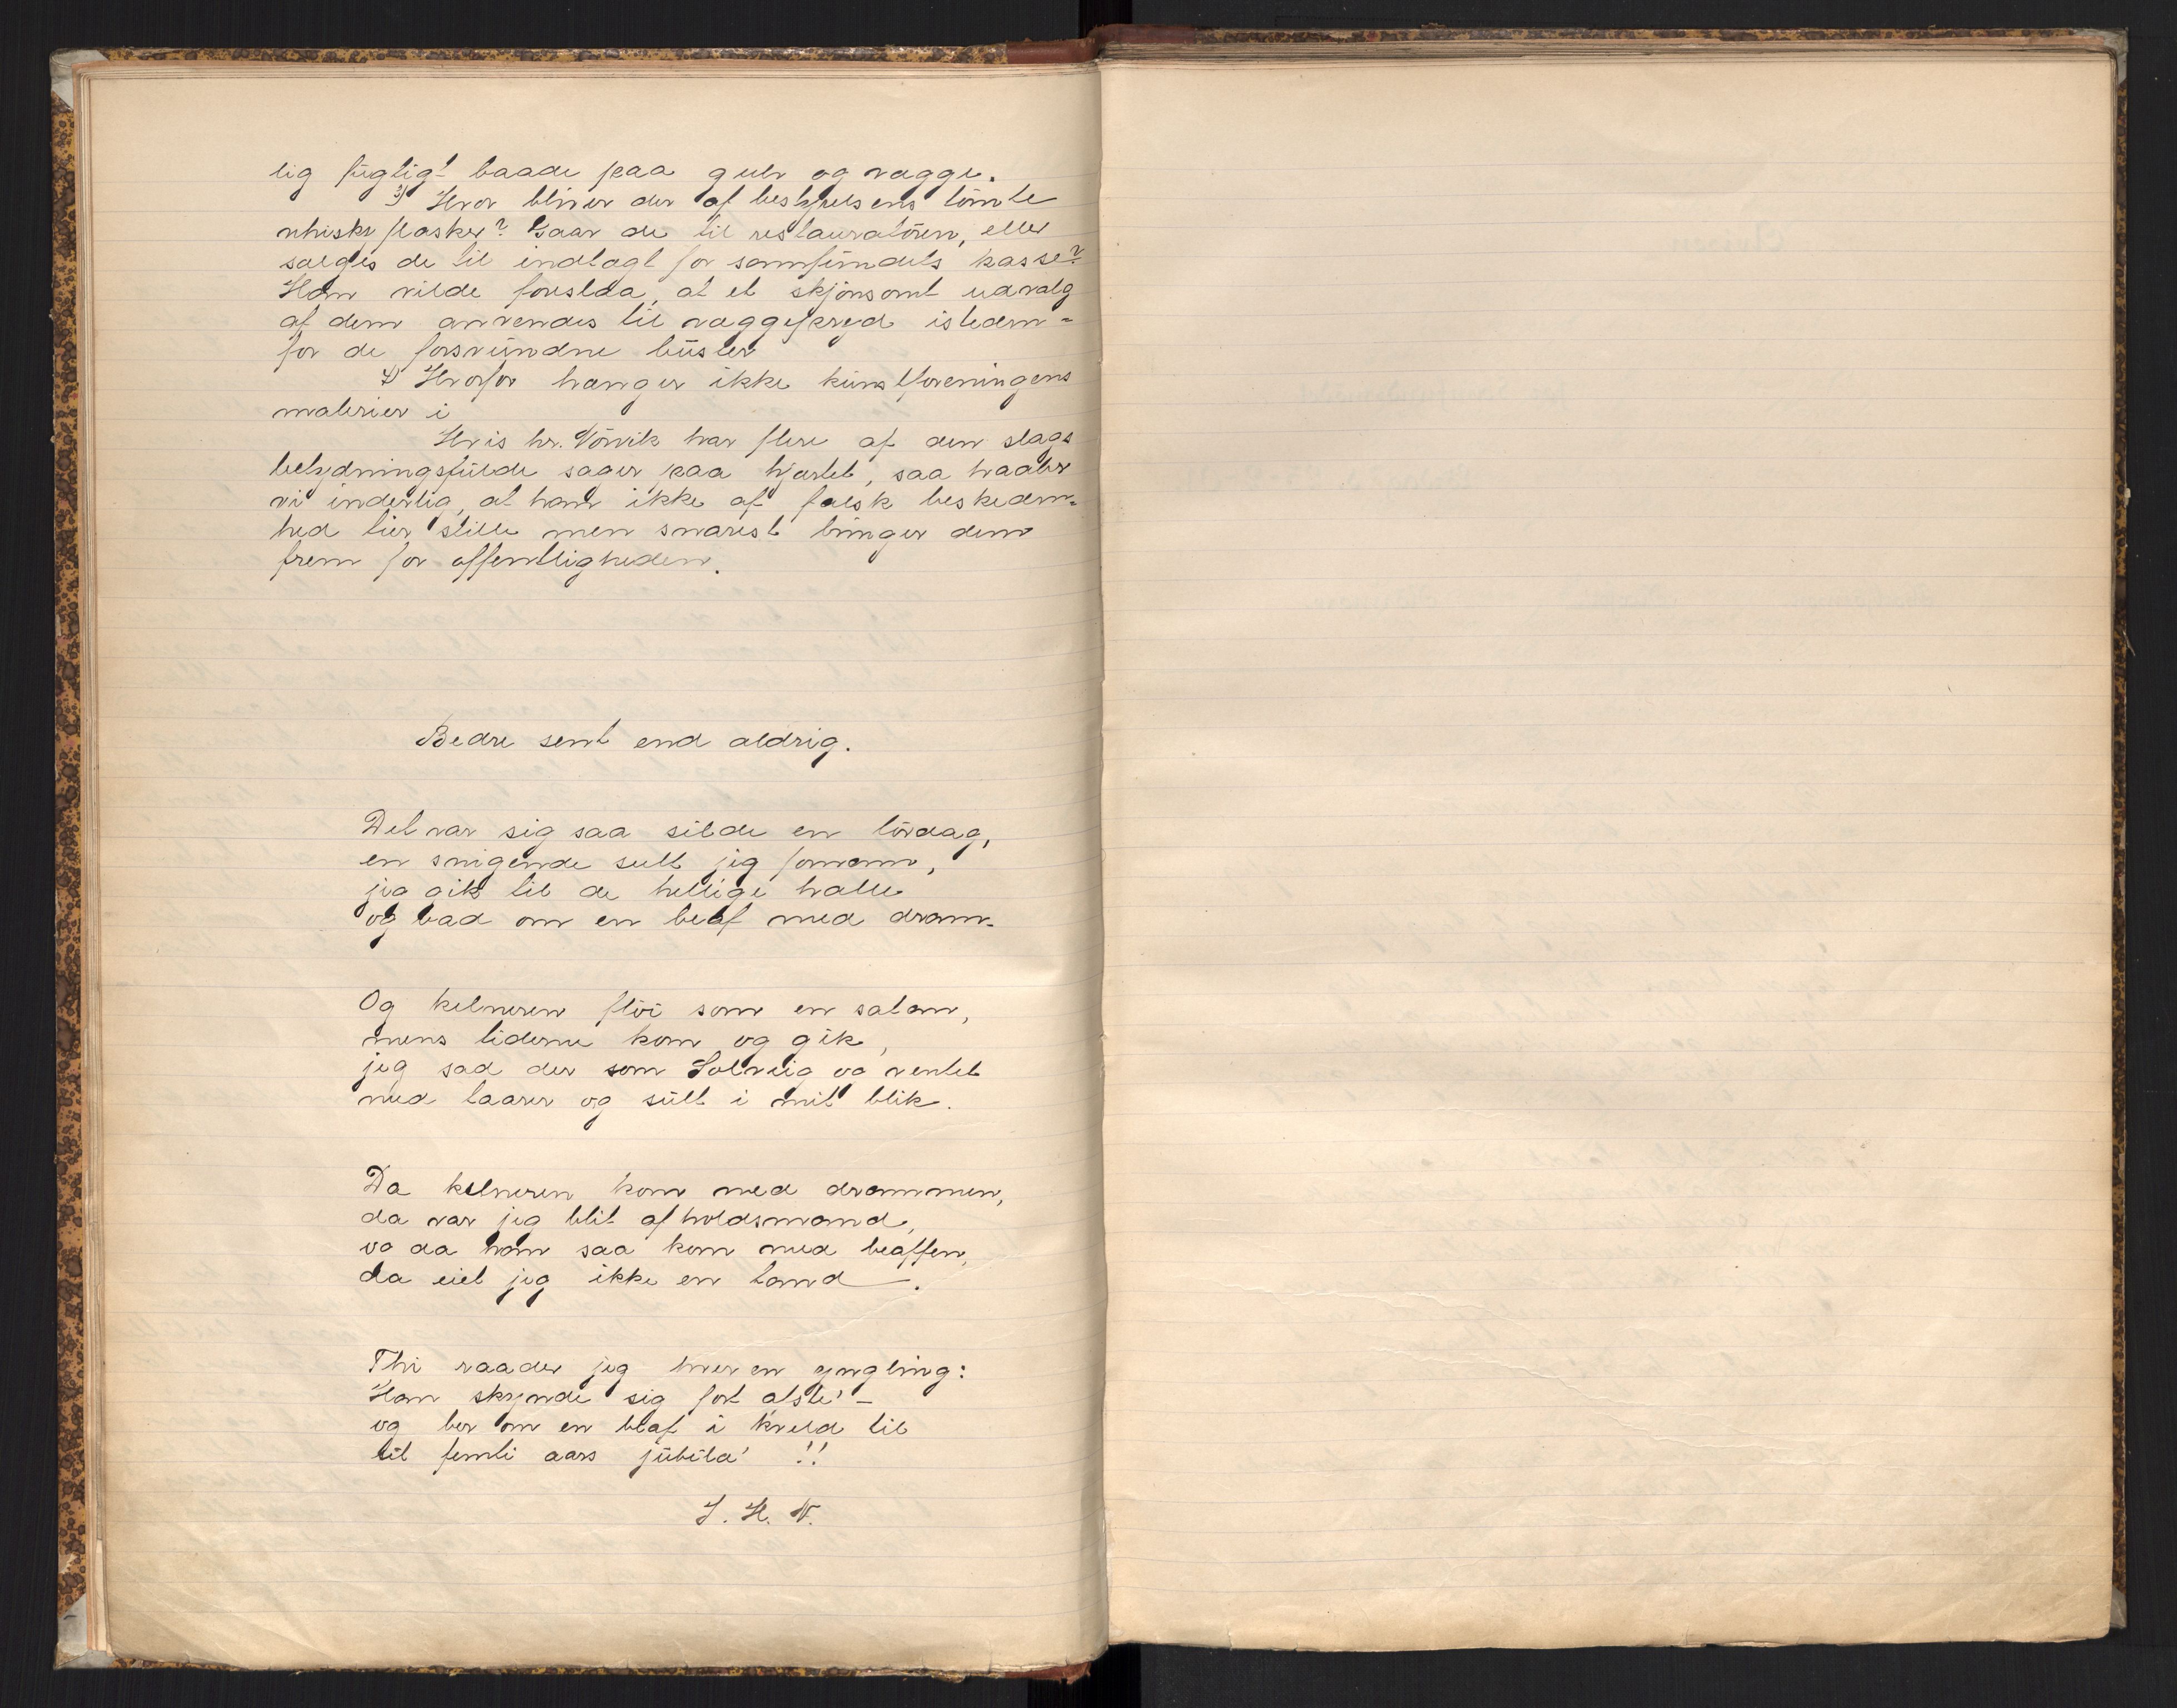 lig fugtigt baade paa gulv og vægge.
3) Hvor bliver der af bestyrelsens tömte
whiskyflasker? Gaar de til restauratören, eller
sælges de til indtægt for samfundets kasse?
Han vilde foreslaa, at et skjönsomt udvalg
af dem anvendes til væggepryd isteden-
for de forsvundne büster
4) Hvorfor hænger ikke kunstforeningens
malerier i
Hvis hr. Nörvik har flere af den slags
betydningsfulde sager paa hjertet, saa haaber
vi inderlig, at han ikke af falsk beskeden-
hed tier stille men snarest bringer dem
frem for offentligheden.
Bedre sent end aldrig.
Det var sig saa silde en lördag,
en snigende sult jeg fornam,
jeg gik til de hellige halle
og bad om en beaf med dram.
Og kelneren flöi som en satan,
mens tiderne kom og gik,
jeg sad der som Solveig og ventet
med taarer og sult i mit blik.
Da kelneren kom med drammen,
da var jeg blit afholdsmand,
og da han saa kom med beaffen,
da eiet jeg ikke en tand.
Thi raader jeg hver en yngling:
Han skynde sig fort afste' –
og ber om en beaf i kveld til
til femti aars jubilæ' !!
J. H. N.